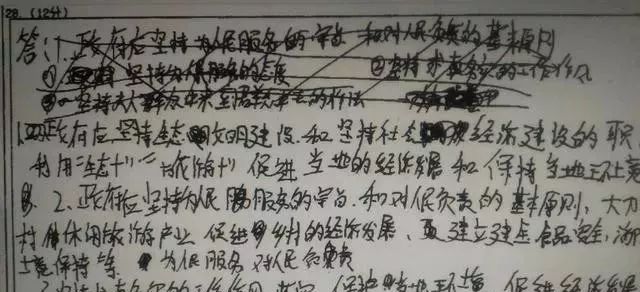 28.（12分）
答：1.政府应坚持为人民服务的宗旨 和对人民负责的基本原则
① 坚持为人民服务的态度 ②坚持求真务实的工作作风
③ 坚持从群众中来到群众中去的
1.政府应坚持生态文明建设和坚持社会 经济建设的职
利用"生态十" "旅游十" 促进当地的经济发展和保持当地环境
2.政府应坚持为人民服务的宗旨.和对人民负责的基本原则，大力
村休闲旅游产业 促进乡村的经济发展、建立健全食品安全,
境保持等 为人民服务 对人民负责
的工作作风 保护当地环境 促进经济发展